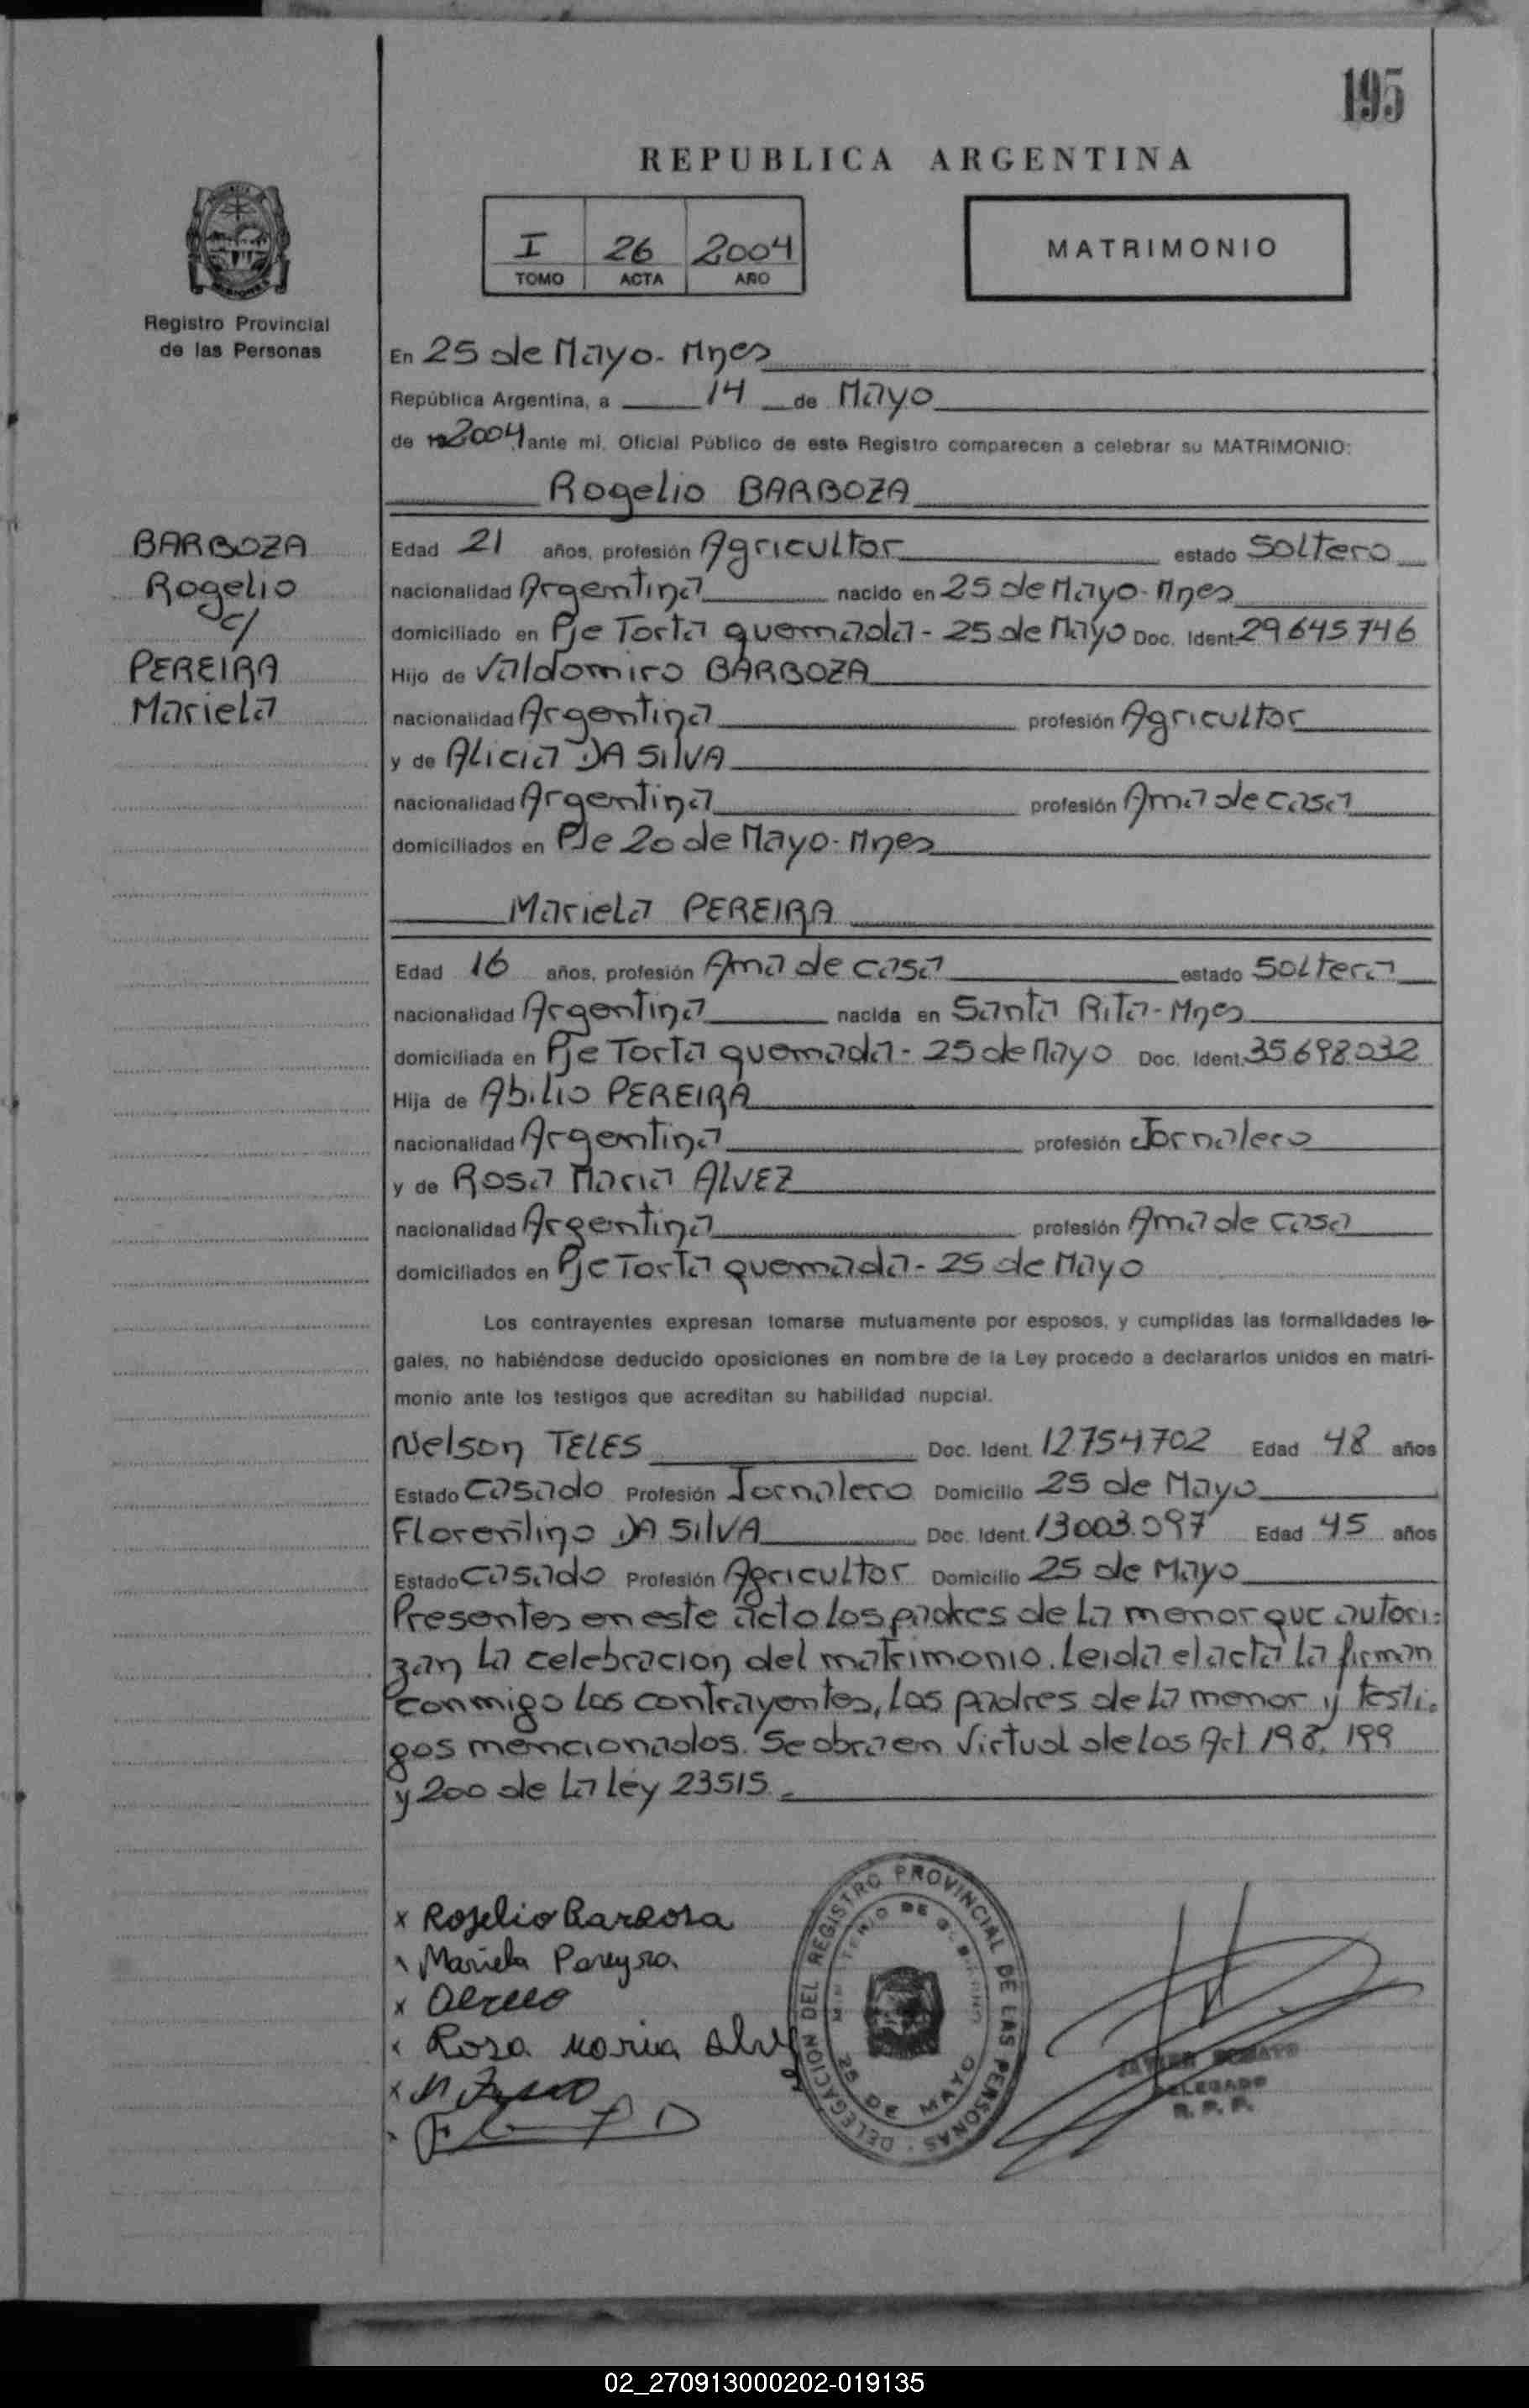 195
REPUBLICA ARGENTINA
I 26 2004
TOMO ACTA AÑO
MATRIMONIO
Registro Provincial
de las Personas
En 25 de Mayo - Mnes
República Argentina, a 14 de Mayo
de 19 2004 ante mi, Oficial Público de este Registro comparecen a celebrar su MATRIMONIO:
Rogelio BARBOZA
BARBOZA
Rogelio
c/
PEREIRA
Mariela
Edad 21 años, profesión Agricultor estado Soltero
nacionalidad Argentina nacido en 25 de Mayo - Mnes
domiciliado en Pje Torta quemada - 25 de Mayo Doc. Ident. 29645746
Hijo de Valdomiro BARBOZA
nacionalidad Argentina profesión Agricultor
y de Alicia DA SILVA
nacionalidad Argentina profesión Ama de casa
domiciliados en Pje 20 de Mayo - Mnes
Mariela PEREIRA
Edad 16 años, profesión Ama de casa estado Soltera
nacionalidad Argentina nacida en Santa Rita - Mnes
domiciliada en Pje Torta quemada - 25 de Mayo Doc. Ident. 35.698.032
Hija de Abilio PEREIRA
nacionalidad Argentina profesión Jornalero
y de Rosa Maria ALVEZ
nacionalidad Argentina profesión Ama de casa
domiciliados en Pje Torta quemada - 25 de Mayo
Los contrayentes expresan tomarse mutuamente por esposos, y cumplidas las formalidades le-
gales, no habiéndose deducido oposiciones en nombre de la Ley procedo a declararlos unidos en matri-
monio ante los testigos que acreditan su habilidad nupcial.
Nelson TELES Doc. Ident. 12754702 Edad 48 años
Estado Casado Profesión Jornalero Domicilio 25 de Mayo
Florentino DA SILVA Doc. Ident. 13003.097 Edad 45 años
Estado Casado Profesión Agricultor Domicilio 25 de Mayo
Presentes en este acto los padres de la menor que autori=
zan la celebracion del matrimonio. Leida el acta la firman
conmigo los contrayentes, los padres de la menor y testi-
gos mencionados. Se obra en Virtual de los Art 198, 199
y 200 de la ley 23515.
x Rogelio Barboza
x Mariela Pereyra
x
x Rosa Maria Alvez
x
x
DELEGACION DEL REGISTRO PROVINCIAL DE LAS PERSONAS
MINISTERIO DE GOBIERNO
25 DE MAYO
JAVIER
DELEGADO
R. P. P.
02_270913000202-019135